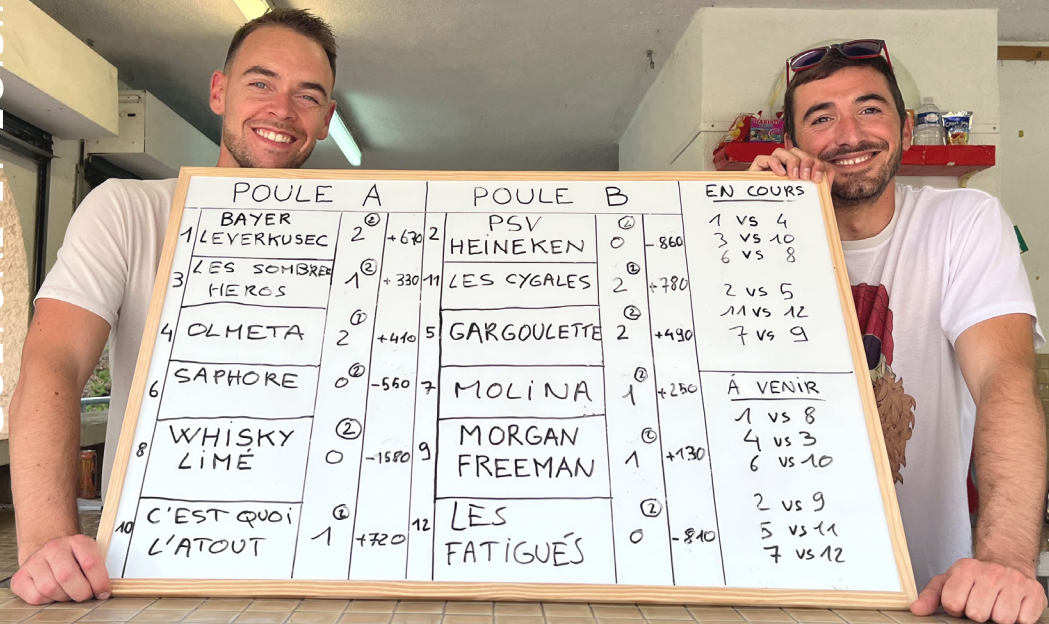 POULE A
1 BAYER LEVERKUSEC 2 ② +670
3 LES SOMBRES HEROS 1 ② +330
4 OLMETA 2 ② +410
6 SAPHORE 0 ② -550
8 WHISKY LIMÉ 0 ② -1580
10 C'EST QUOI L'ATOUT 1 ② +720
POULE B
2 PSV HEINEKEN 0 ② -860
11 LES CYGALES 2 ② +780
5 GARGOULETTE 2 ② +490
7 MOLINA 1 ② +250
9 MORGAN FREEMAN 1 ② +130
12 LES FATIGUÉS 0 ② -810
EN COURS
1 VS 4
3 VS 10
6 VS 8
2 VS 5
11 VS 12
7 VS 9
À VENIR
1 VS 8
4 VS 3
6 VS 10
2 VS 9
5 VS 11
7 VS 12